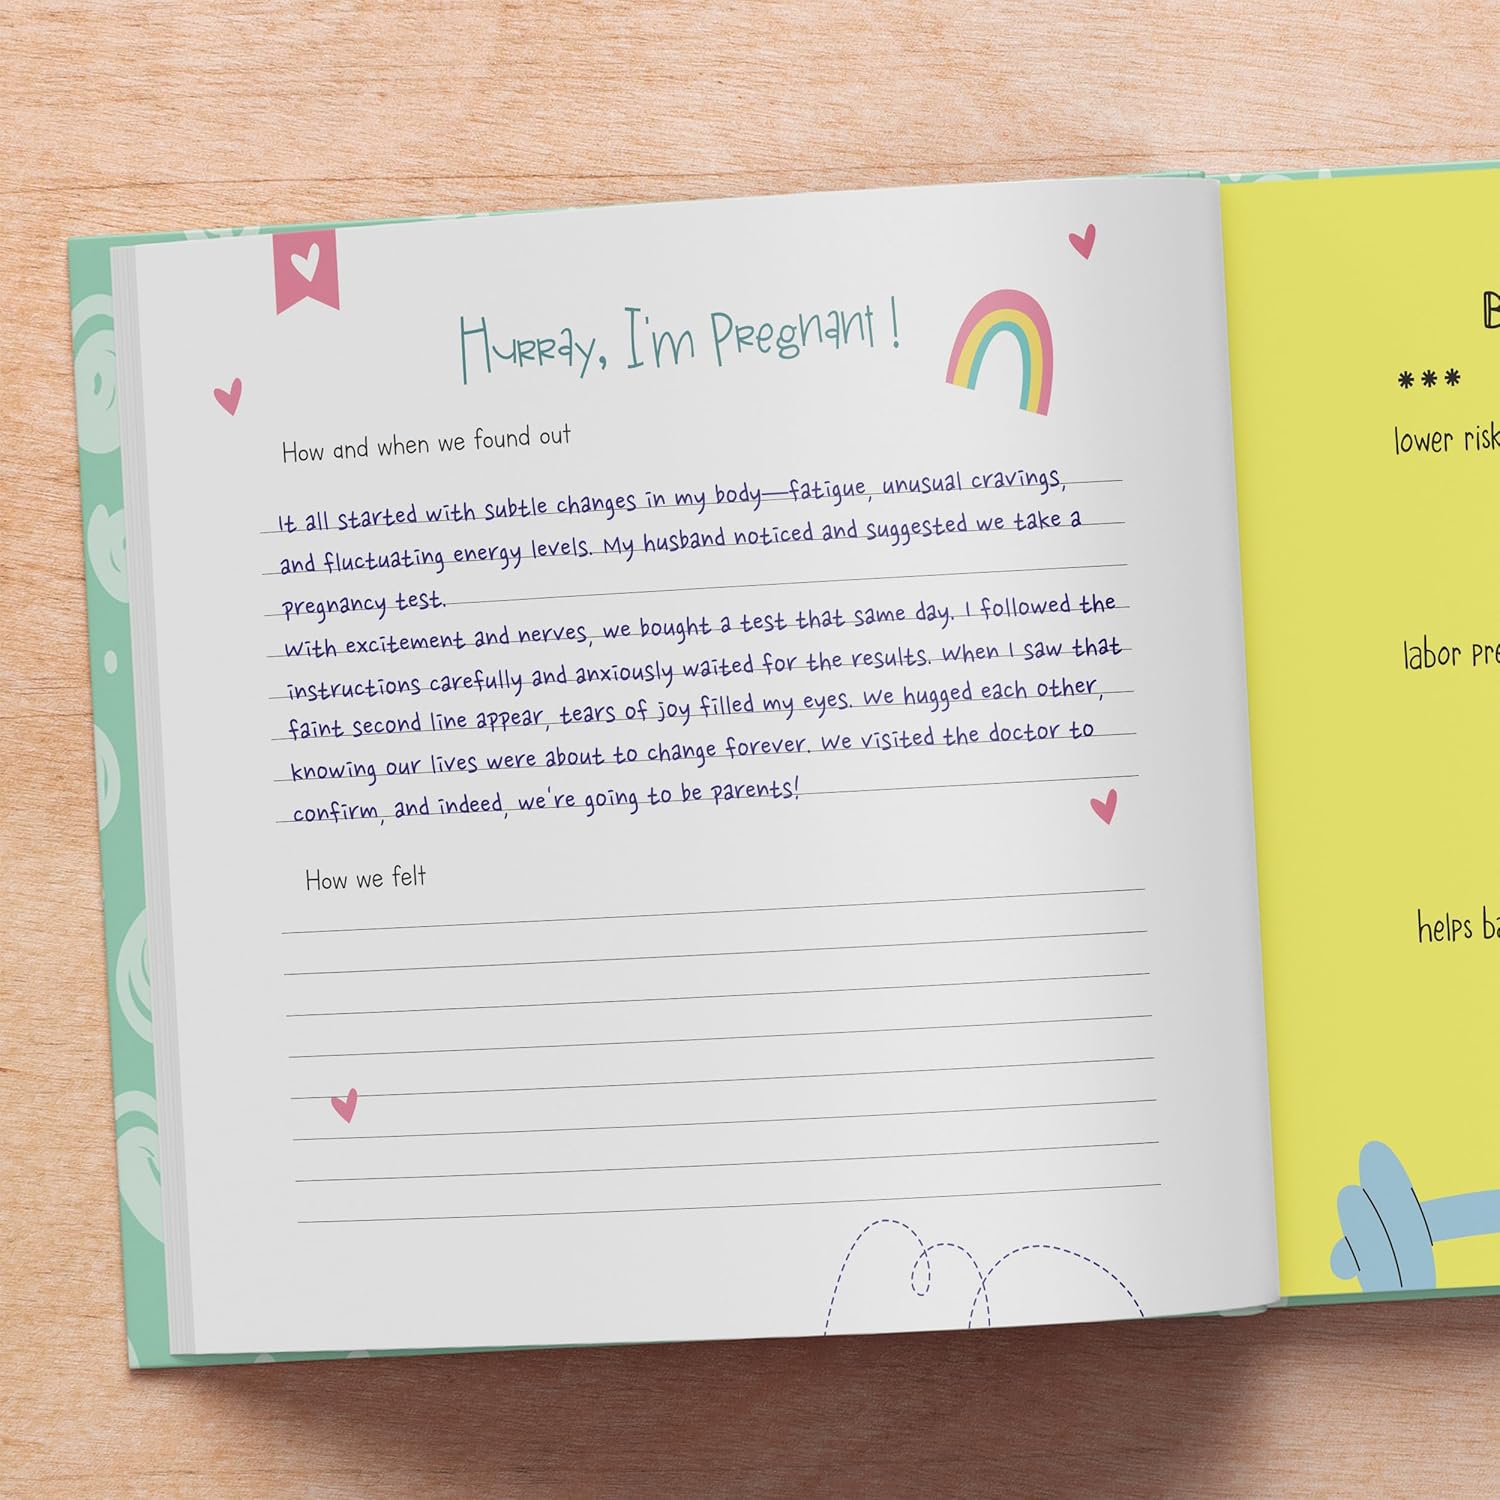 Hurray, I'm Pregnant !
How and when we found out
It all started with subtle changes in my body—fatigue, unusual cravings,
and fluctuating energy levels. My husband noticed and suggested we take a
pregnancy test.
With excitement and nerves, we bought a test that same day. I followed the
instructions carefully and anxiously waited for the results. When I saw that
faint second line appear, tears of joy filled my eyes. We hugged each other,
knowing our lives were about to change forever. We visited the doctor to
confirm, and indeed, we're going to be parents!
How we felt
***
lower risk
labor pre
helps ba